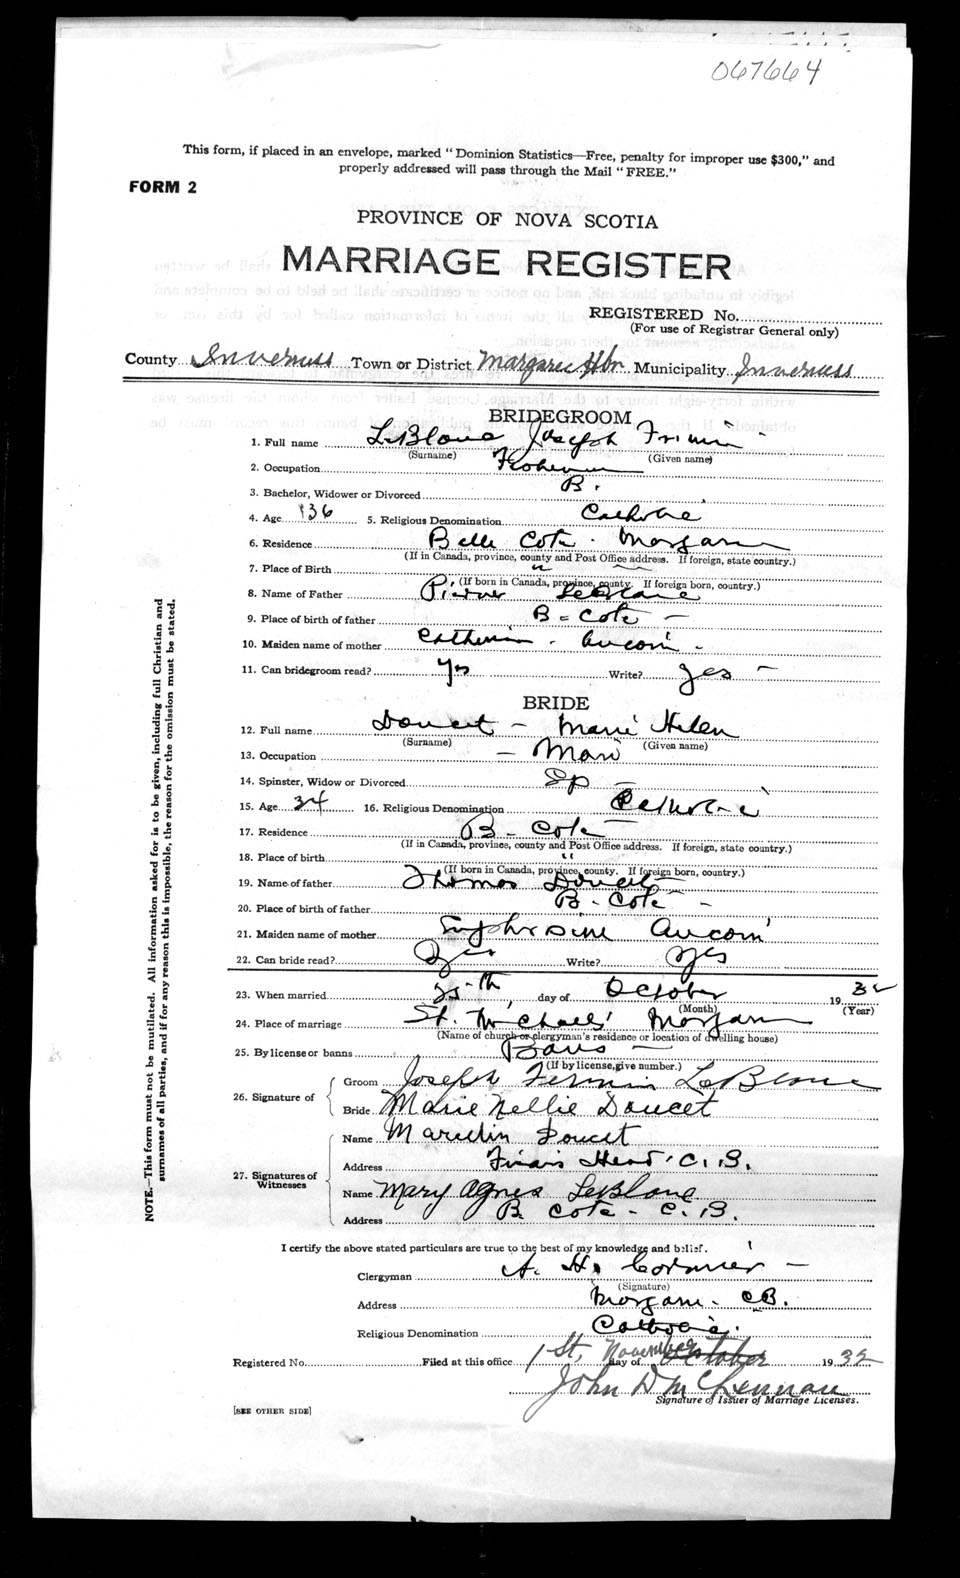 067664
This form, if placed in an envelope, marked "Dominion Statistics—Free, penalty for improper use $300," and
properly addressed will pass through the Mail "FREE."
FORM 2
PROVINCE OF NOVA SCOTIA
MARRIAGE REGISTER
REGISTERED No.
(For use of Registrar General only)
County Inverness Town or District Margaree Hbr. Municipality Inverness
BRIDEGROOM
1. Full name LeBlanc Joseph Firmin
(Surname) (Given name)
2. Occupation Fisherman
3. Bachelor, Widower or Divorced B.
4. Age 36 5. Religious Denomination Catholic
6. Residence Belle Cote - Margaree
(If in Canada, province, county and Post Office address. If foreign, state country.)
7. Place of Birth " —
(If born in Canada, province, county. If foreign born, country.)
8. Name of Father Pierre LeBlanc
9. Place of birth of father B - Cote —
10. Maiden name of mother Catherin - Aucoin -
11. Can bridegroom read? Yes Write? yes —
BRIDE
12. Full name Doucet — Marie Helen
(Surname) (Given name)
13. Occupation —
14. Spinster, Widow or Divorced Sp —
15. Age 34 16. Religious Denomination Catholic
17. Residence B - Cote
(If in Canada, province, county and Post Office address. If foreign, state country.)
18. Place of birth "
(If born in Canada, province, county. If foreign born, country.)
19. Name of father Thomas Doucet
20. Place of birth of father B - Cote -
21. Maiden name of mother Euphrosine Aucoin
22. Can bride read? Yes Write? yes
23. When married 25th day of October 1932
(Month) (Year)
24. Place of marriage St. Michaels' Margaree
(Name of church or clergyman's residence or location of dwelling house)
25. By license or banns Bans —
(If by license, give number.)
26. Signature of
Groom Joseph Fermin LeBlanc
Bride Marie Nellie Doucet
27. Signatures of Witnesses
Name Doucet
Address Friar's Head, C. B.
Name Mary Agnes LeBlanc
Address B Cote - C. B.
I certify the above stated particulars are true to the best of my knowledge and belief.
Clergyman A. H. Cormier —
(Signature)
Address Margaree - CB.
Religious Denomination Catholic.
Registered No. Filed at this office 1st, day of November October 1932
John D McLennan
Signature of Issuer of Marriage Licenses.
[SEE OTHER SIDE]
NOTE.—This form must not be mutilated. All information asked for is to be given, including full Christian and
surnames of all parties, and if for any reason this is impossible, the reason for the omission must be stated.